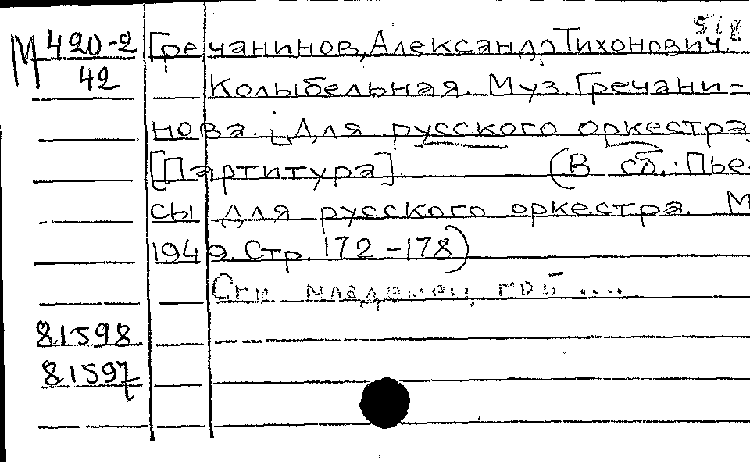 М 420-2
42
Гречанинов, Александр Тихонович.
Колыбельная. Муз. Гречани-
нова. [Для русского оркестра
[Партитура] (В сб.: Пье-
сы для русского оркестра. М
1949. Стр. 172-178)
Спи младенец, мой ....
81598
81597